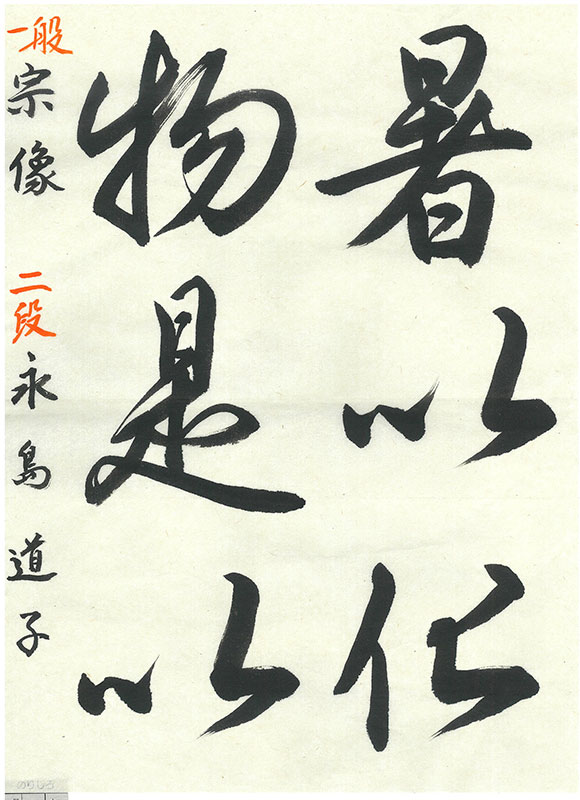 暑以化
物是以
一般 宗像 二段 永島道子
のりしろ